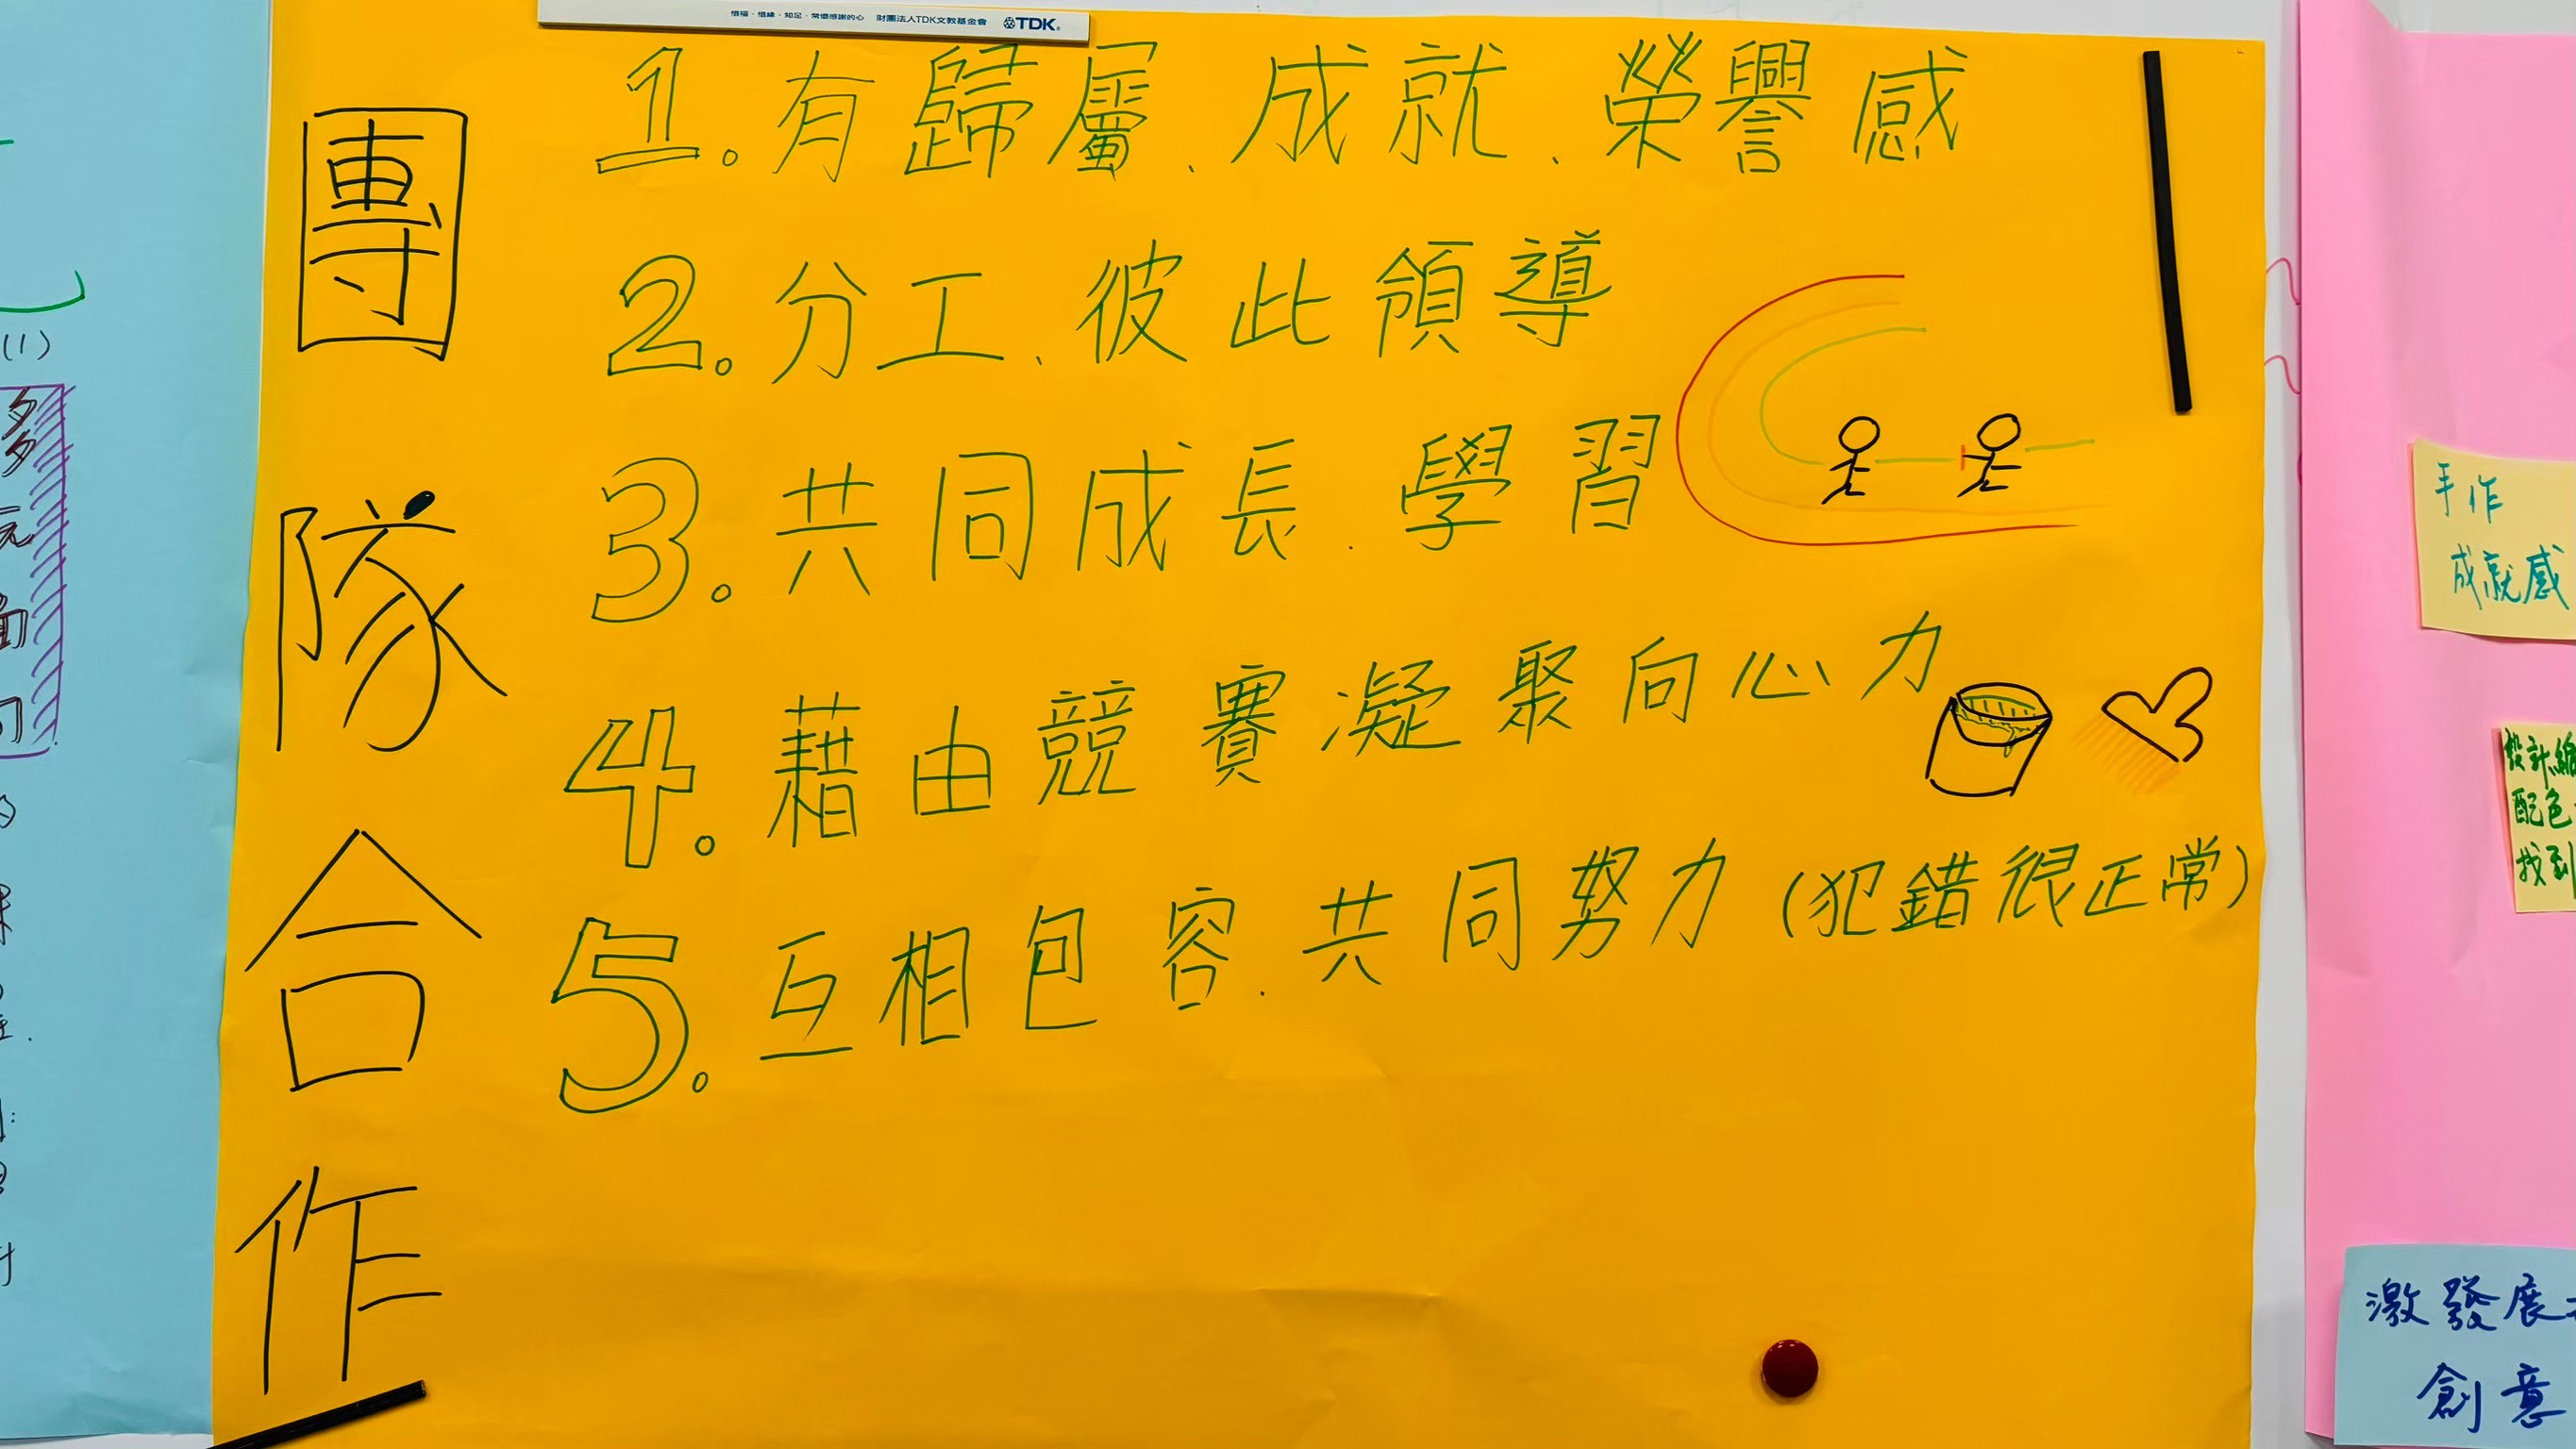 惜福·惜緣·知足·常懷感謝的心 財團法人TDK文教基金會 TDK
團隊合作
1. 有歸屬、成就、榮譽感
2. 分工、彼此領導
3. 共同成長、學習
4. 藉由競賽凝聚向心力
5. 互相包容、共同努力(犯錯很正常)
(1)
多
元
面
手作
成就感
設計
配色
找到
激發展
創意